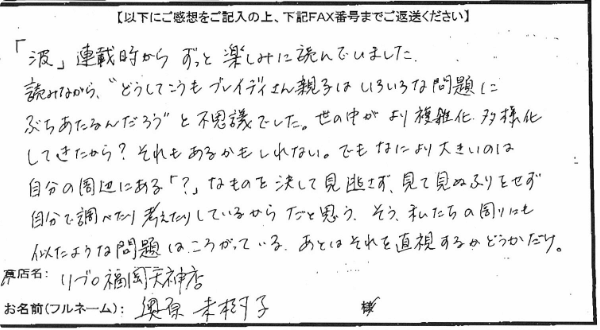 【以下にご感想をご記入の上、下記FAX番号までご返送ください】
「波」連載時から ずっと 楽しみに読んでいました。
読みながら、“どうしてこうも ブレイディさん親子は いろいろな問題に
ぶちあたるんだろう” と 不思議でした。世の中が より 複雑化 多様化
してきたから? それもあるかもしれない。でも なにより 大きいのは
自分の周辺にある「?」なものを 決して見逃さず、見て見ぬふりをせず
自分で調べたり 考えたりしているから だと思う。そう、私たちの周りにも
似たような問題は ころがっている。あとはそれを直視するかどうかだけ。
貴店名: リブロ福岡天神店
お名前(フルネーム): 奥原 未樹子 様